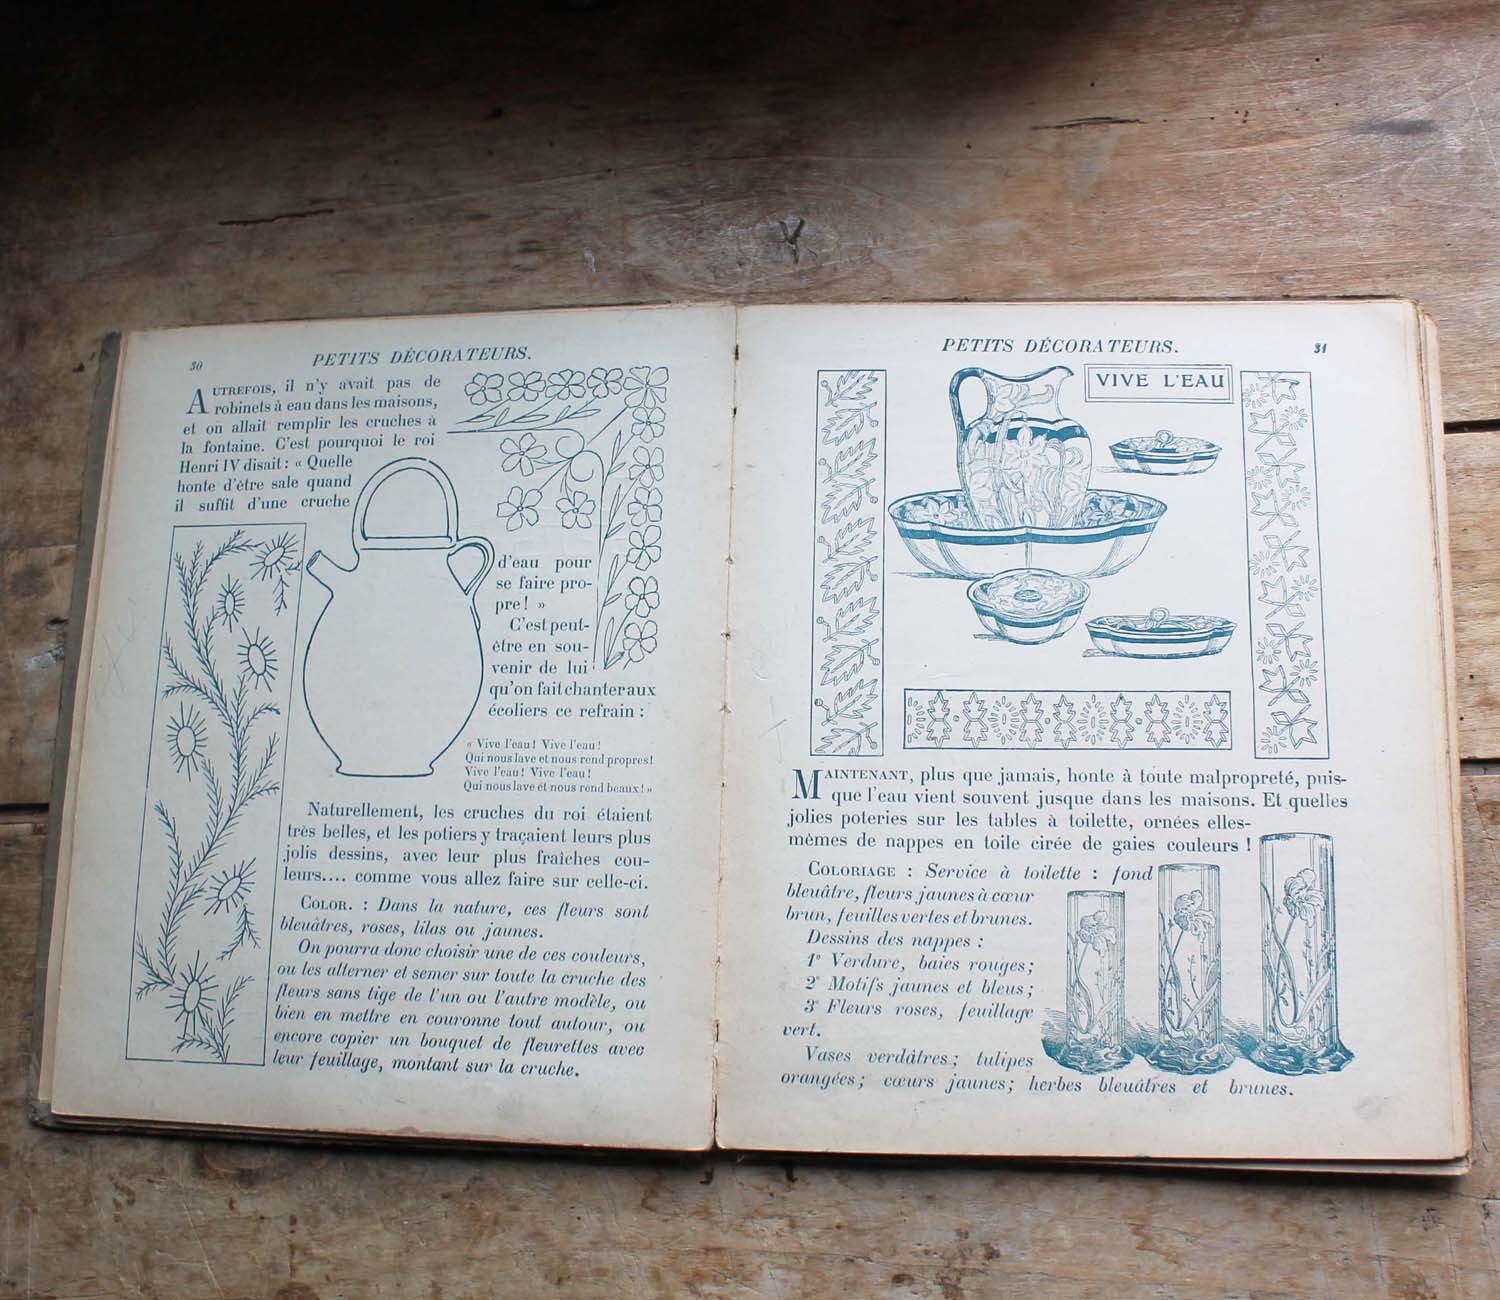 30
PETITS DÉCORATEURS.
AUTREFOIS, il n'y avait pas de
robinets à eau dans les maisons,
et on allait remplir les cruches à
la fontaine. C'est pourquoi le roi
Henri IV disait : « Quelle
honte d'être sale quand
il suffit d'une cruche
d'eau pour
se faire pro-
pre ! »
C'est peut-
être en sou-
venir de lui
qu'on fait chanter aux
écoliers ce refrain :
« Vive l'eau ! Vive l'eau !
Qui nous lave et nous rend propres !
Vive l'eau ! Vive l'eau !
Qui nous lave et nous rend beaux ! »
Naturellement, les cruches du roi étaient
très belles, et les potiers y traçaient leurs plus
jolis dessins, avec leur plus fraîches cou-
leurs.... comme vous allez faire sur celle-ci.
COLOR. : Dans la nature, ces fleurs sont
bleuâtres, roses, lilas ou jaunes.
On pourra donc choisir une de ces couleurs,
ou les alterner et semer sur toute la cruche des
fleurs sans tige de l'un ou l'autre modèle, ou
bien en mettre en couronne tout autour, ou
encore copier un bouquet de fleurettes avec
leur feuillage, montant sur la cruche.
PETITS DÉCORATEURS.
31
VIVE L'EAU
MAINTENANT, plus que jamais, honte à toute malpropreté, puis-
que l'eau vient souvent jusque dans les maisons. Et quelles
jolies poteries sur les tables à toilette, ornées elles-
mêmes de nappes en toile cirée de gaies couleurs !
COLORIAGE : Service à toilette : fond
bleuâtre, fleurs jaunes à cœur
brun, feuilles vertes et brunes.
Dessins des nappes :
1° Verdure, baies rouges ;
2° Motifs jaunes et bleus ;
3° Fleurs roses, feuillage
vert.
Vases verdâtres ; tulipes
orangées ; cœurs jaunes ; herbes bleuâtres et brunes.